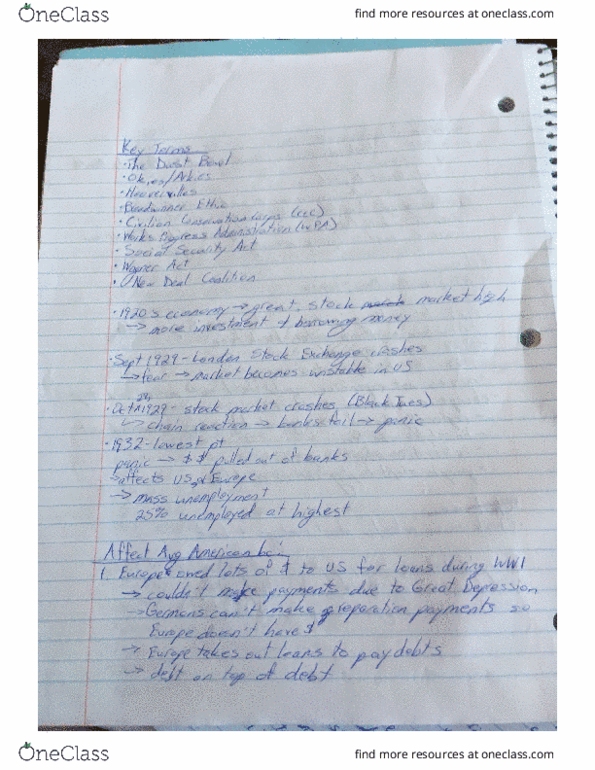 OneClass
find more resources at oneclass.com
Key Terms
· The Dust Bowl
· Okies/Arkies
· Hoovervilles
· Breadwinner Ethic
· Civilian Conservation Corps (CCC)
· Works Progress Administration (WPA)
· Social Security Act
· Wagner Act
· New Deal Coalition
· 1920s economy → great, stock market high
→ more investment & borrowing money
· Sept 1929 - London Stock Exchange crashes
→ fear → market becomes unstable in US
· Oct 29, 1929 - stock market crashes (Black Tues)
↳ chain reaction → banks fail → panic
· 1932 - lowest pt
panic → $$ pulled out of banks
→ affects US & Europe
→ mass unemployment
25% unemployed at highest
Affect Avg American
1. Europe owed lots of $ to US for loans during WWI
→ couldn't make payments due to Great Depression
→ Germans can't make reparation payments so
Europe doesn't have $
→ Europe takes out loans to pay debts
→ debt on top of debt
OneClass
find more resources at oneclass.com